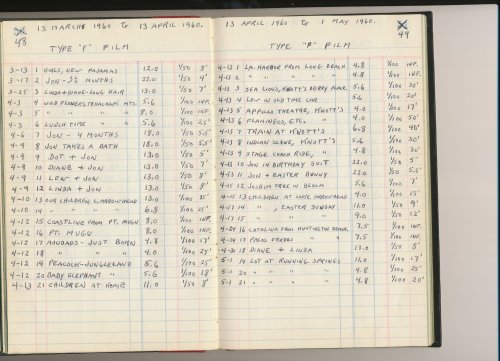 13 MARCH 1960 TO 13 APRIL 1960.
48
TYPE "F" FILM
3-13 1 GIRLS, NEW PAJAMAS 12.0 1/50 8'
3-17 2 JON - 3½ MONTHS 22.0 1/50 4'
3-25 3 LINDA + DIANE - LONG HAIR 13.0 1/50 7'
4-3 4 WILD FLOWERS, TEHACHAPI MTS. 5.6 1/100 INF.
4-3 5 " " " 8.0 1/100 INF.
4-3 6 LUNCH TIME " " 5.6 1/100 25'
4-6 7 JON - 4 MONTHS 18.0 1/50 5.5'
4-9 8 JON TAKES A BATH 18.0 1/50 5.5'
4-9 9 DOT + JON 13.0 1/50 5'
4-9 10 DIANE + JON 13.0 1/50 7'
4-9 11 LEW + JON 13.0 1/50 6'
4-9 12 LINDA + JON 13.0 1/50 8'
4-10 13 OUR CHILDREN L. ARROWHEAD 13.0 1/100 35'
4-10 14 " " " 6.8 1/100 25'
4-12 15 COASTLINE FROM PT. MUGU 8.0 1/100 INF.
4-12 16 PT. MUGU 8.0 1/100 INF.
4-12 17 AOUDADS - JUST BORN 4.8 1/100 17'
4-12 18 " " " 4.0 1/100 25'
4-12 19 PEACOCK-JUNGLELAND 5.6 1/100 25'
4-12 20 BABY ELEPHANT " 5.6 1/100 18'
4-13 21 CHILDREN AT HOME 11.0 1/50 8'
13 APRIL 1960 TO 1 MAY 1960.
49
TYPE "F" FILM
4-13 1 L.A. HARBOR FROM LONG BEACH 4.8 1/100 INF.
4-13 2 " " " " 4.8 1/100 INF.
4-13 3 SEA LIONS, KNOTT'S BERRY FARM. 5.6 1/100 30'
4-13 4 LEW IN OLD TIME CAR 5.6 1/100 20'
4-13 5 APPOLLO THEATRE, KNOTT'S 4.0 1/100 17'
4-13 6 FLAMINGOS, ETC. " 4.0 1/100 50'
4-13 7 TRAIN AT KNOTT'S 6.8 1/100 40'
4-13 8 INDIAN SCENE, KNOTT'S 5.6 1/100 30'
4-13 9 STAGE COACH RIDE, " 4.8 1/100 30'
4-13 10 JON IN BIRTHDAY SUIT 22.0 1/50 5'
4-13 11 JON + EASTER BUNNY 22.0 1/50 5.5'
4-15 12 JOSHUA TREE IN BLOOM 5.6 1/100
4-15 13 CHILDREN AT LAKE ARROWHEAD 4.0 1/100 15'
4-17 14 " , EASTER SUNDAY 11.0 1/50 9'
4-17 15 " " " 9.0 1/50 12'
4-24 16 CATALINA FROM HUNTINGTON BEACH. 7.5 1/100 INF.
4-24 17 PALOS VERDES " 7.5 1/100 INF.
4-31 18 DIANE + LINDA 13.0 1/50 8'
5-1 19 LOT AT RUNNING SPRINGS 11.0 1/100 17'
5-1 20 " " " 4.8 1/100 25'
5-1 21 " " " 4.8 1/100 20'